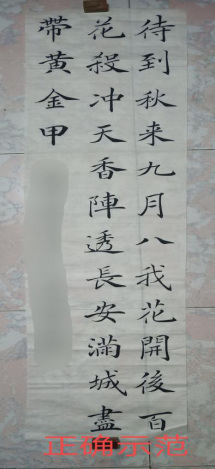 待到秋来九月八我花開後百
花殺冲天香陣透長安滿城盡
帶黄金甲
正确示范